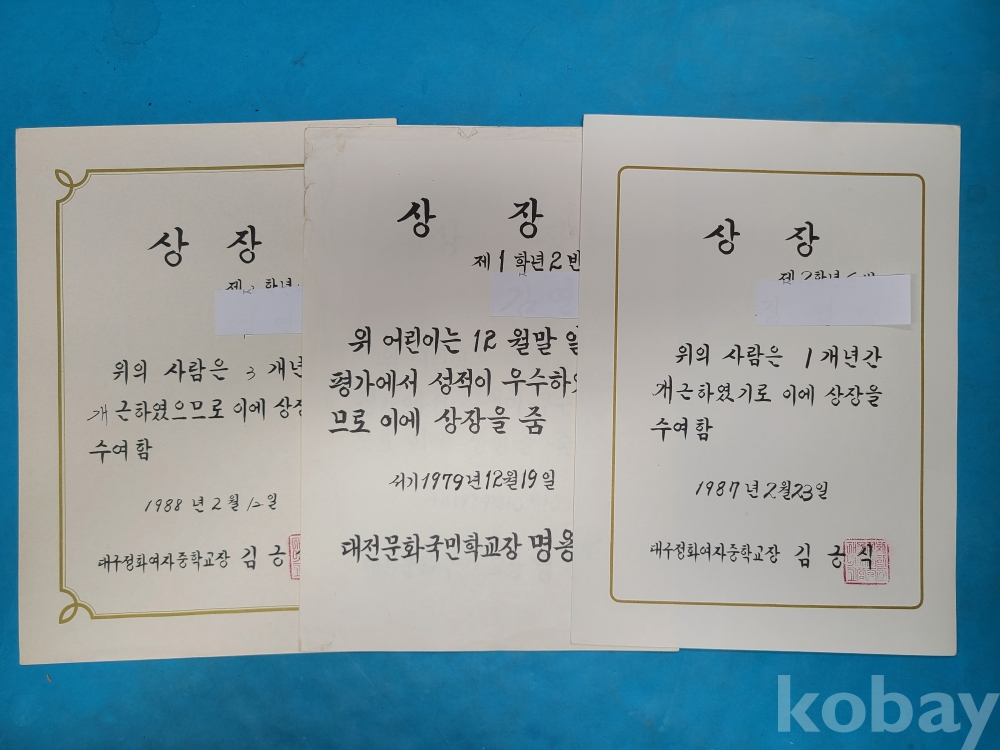 상 장
제 학년
위의 사람은 3 개년
개근하였으므로 이에 상장
수여함
1988년 2월 12일
대구정화여자중학교장 김 긍
상 장
제1학년2반
위 어린이는 12월말
평가에서 성적이 우수하
므로 이에 상장을 줌
서기1979년12월19일
대전문화국민학교장 명용
상 장
제2학년
위의 사람은 1개년간
개근하였기로 이에 상장을
수여함
1987년 2월23일
대구정화여자중학교장 김 긍 식
kobay